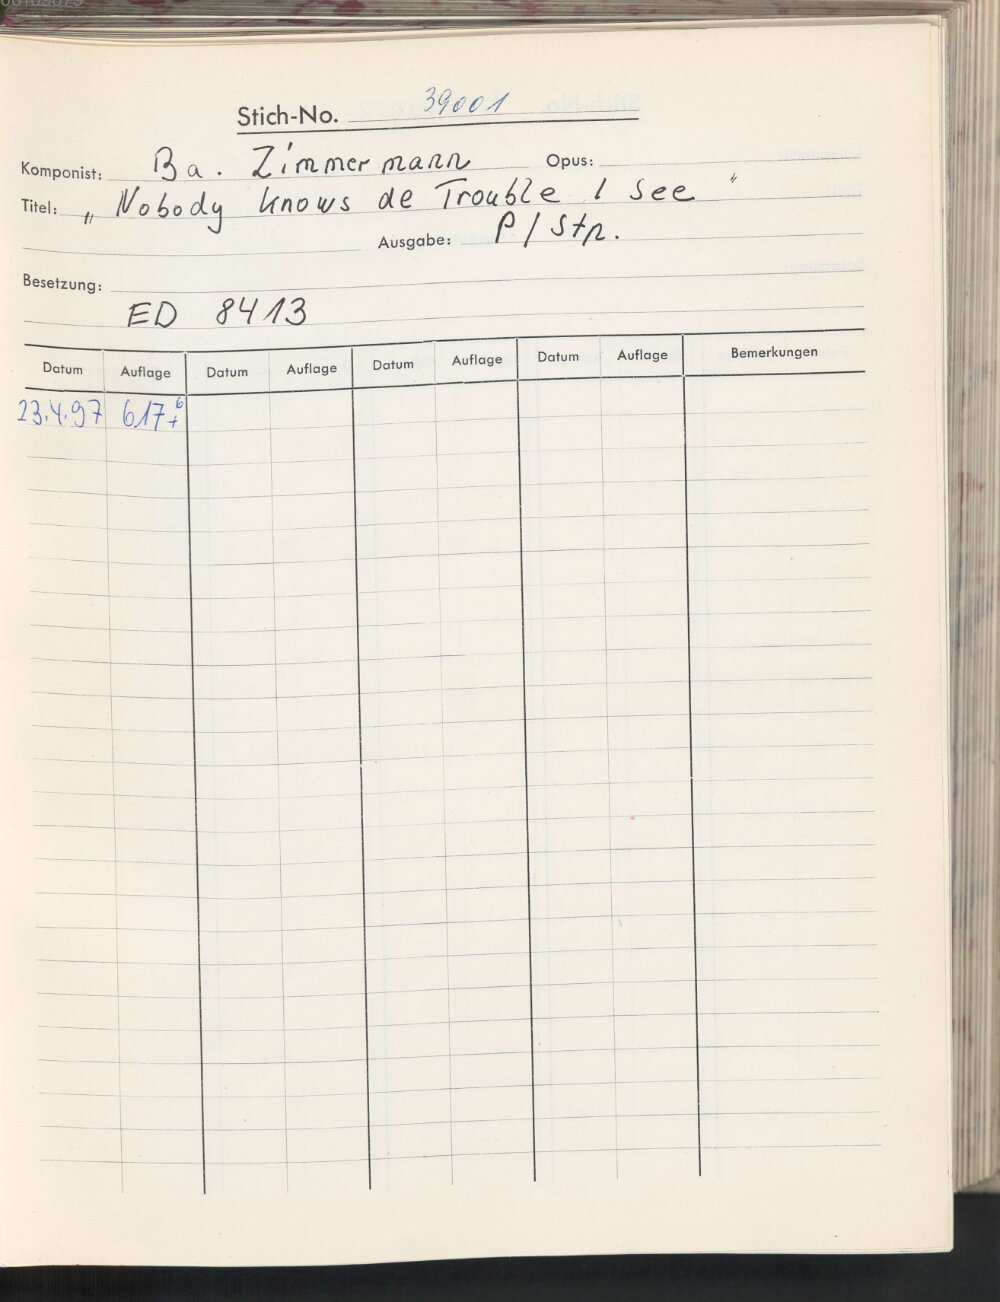 Stich-No. 39001
Komponist: Ba. Zimmermann Opus:
Titel: „Nobody knows de Trouble I see"
Ausgabe: P/Stp.
Besetzung:
ED 8413
Datum Auflage Datum Auflage Datum Auflage Datum Auflage Bemerkungen
23.4.97 617+6